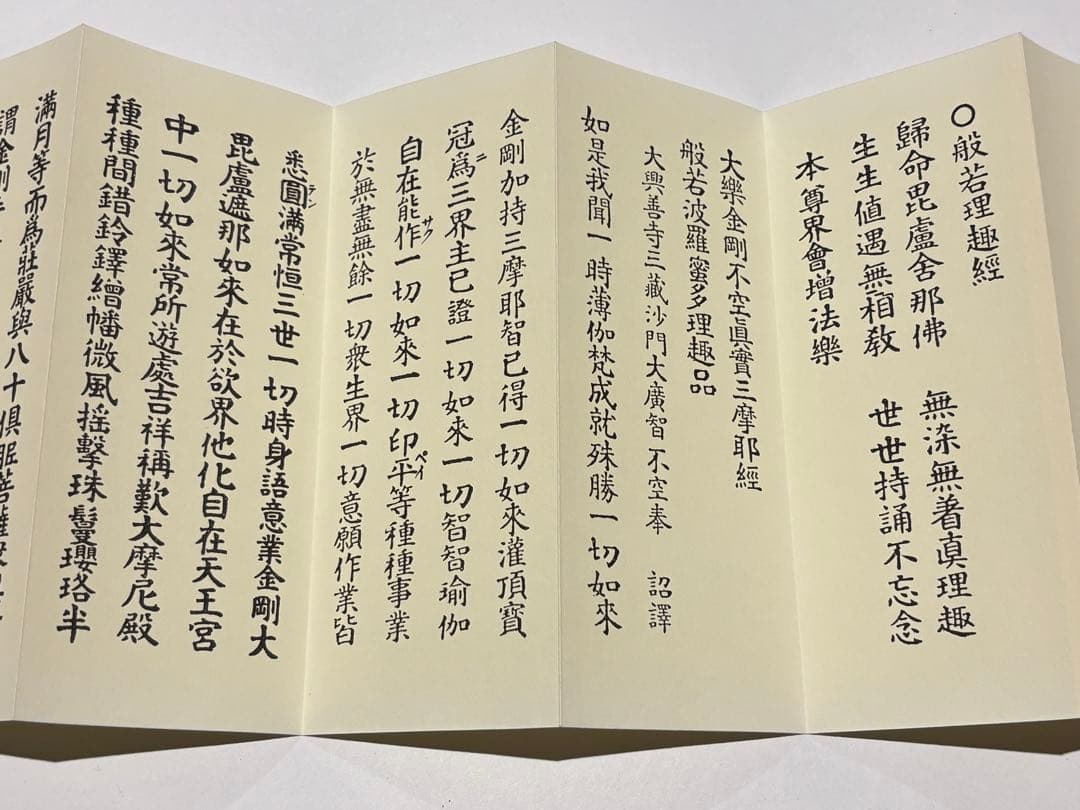 〇般若理趣經
歸命毘盧舍那佛　無染無著眞理趣
生生値遇無相敎　世世持誦不忘念
本尊界會增法樂
大樂金剛不空眞實三摩耶經
般若波羅蜜多理趣品
大興善寺三藏沙門大廣智不空奉　詔譯
如是我聞一時薄伽梵成就殊勝一切如來
金剛加持三摩耶智已得一切如來灌頂寶
冠爲ニ三界主已證一切如來一切智智瑜伽
自在能作サク一切如來一切印平ペイ等種種事業
於無盡無餘一切衆生界一切意願作業皆
悉圓テン滿常恒三世一切時身語意業金剛大
毘盧遮那如來在於欲界他化自在天王宮
中一切如來常所遊處吉祥稱歎大摩尼殿
種種間錯鈴鐸繒幡微風揺擊珠鬘瓔珞半
滿月等而爲莊嚴與八十倶胝菩薩
謂金剛手